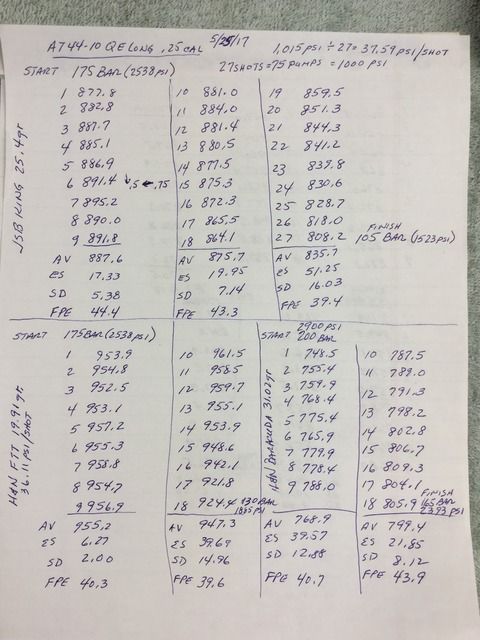 AT44-10 QE LONG, .25 CAL 5/25/17
1,015 PSI ÷ 27 = 37.59 PSI/SHOT
27 SHOTS = 75 PUMPS = 1000 PSI
START 175 BAR (2538 PSI)
JSB KING 25.4gr
1 877.8
2 882.8
3 887.7
4 885.1
5 886.9
6 891.4 ↓.5 ← .75
7 895.2
8 890.0
9 891.8
AV 887.6
ES 17.33
SD 5.38
FPE 44.4
10 881.0
11 884.0
12 881.4
13 880.5
14 877.5
15 875.3
16 872.3
17 865.5
18 864.1
AV 875.7
ES 19.95
SD 7.14
FPE 43.3
19 859.5
20 851.3
21 844.3
22 841.2
23 839.8
24 830.6
25 828.7
26 818.0
27 808.2
FINISH
105 BAR (1523 PSI)
AV 835.7
ES 51.25
SD 16.03
FPE 39.4
START 175 BAR (2538 PSI)
H&N FTT 19.91 gr.
36.11 PSI/SHOT
1 953.9
2 954.8
3 952.5
4 953.1
5 957.2
6 955.3
7 958.8
8 954.7
9 956.9
AV 955.2
ES 6.27
SD 2.00
FPE 40.3
10 961.5
11 958.5
12 959.7
13 955.1
14 953.9
15 948.6
16 942.1
17 921.8
18 924.4 130 BAR
1885 PSI
AV 947.3
ES 39.69
SD 14.96
FPE 39.6
2900 PSI
START 200 BAR
H&N BARACUDA 31.02gr
1 748.5
2 755.4
3 759.9
4 768.4
5 775.4
6 765.9
7 779.9
8 778.4
9 788.0
AV 768.9
ES 39.57
SD 12.88
FPE 40.7
10 787.5
11 788.0
12 791.3
13 798.2
14 802.8
15 806.7
16 809.3
17 804.1
18 805.9
FINISH
165 BAR
2393 PSI
AV 799.4
ES 21.85
SD 8.12
FPE 43.9